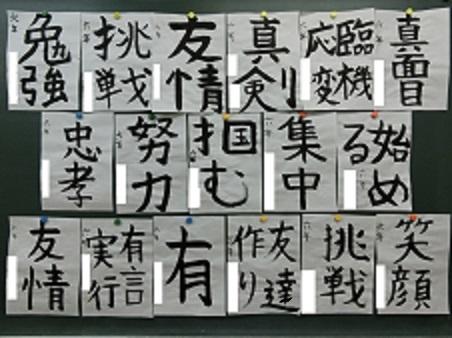 真面目
臨機
応変
真剣
友情
挑戦
勉強
始め
る
集中
掴む
努力
忠孝
笑顔
挑戦
友達
作り
有
有言
実行
友情